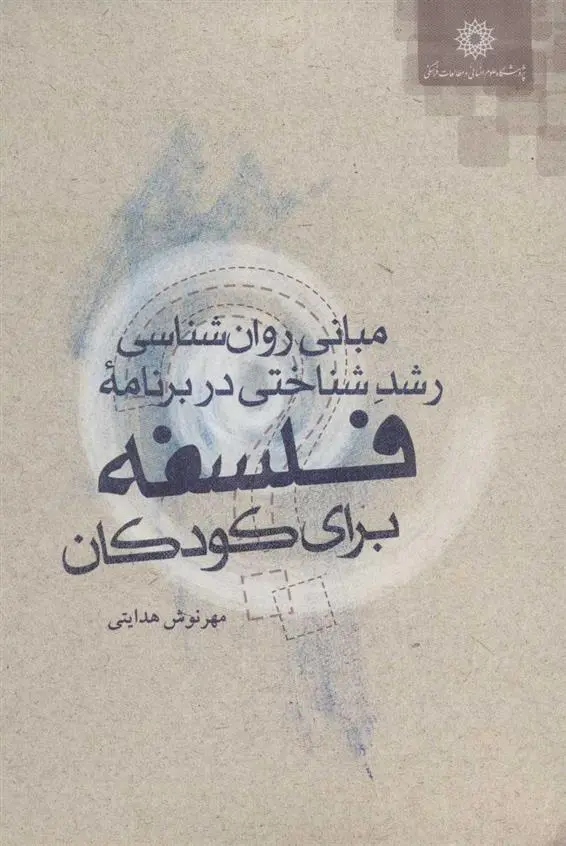 پژوهشگاه علوم انسانی و مطالعات فرهنگی
مبانی روان‌شناسی
رشدِ شناختی در برنامهٔ
فلسفه
برای کودکان
مهرنوش هدایتی